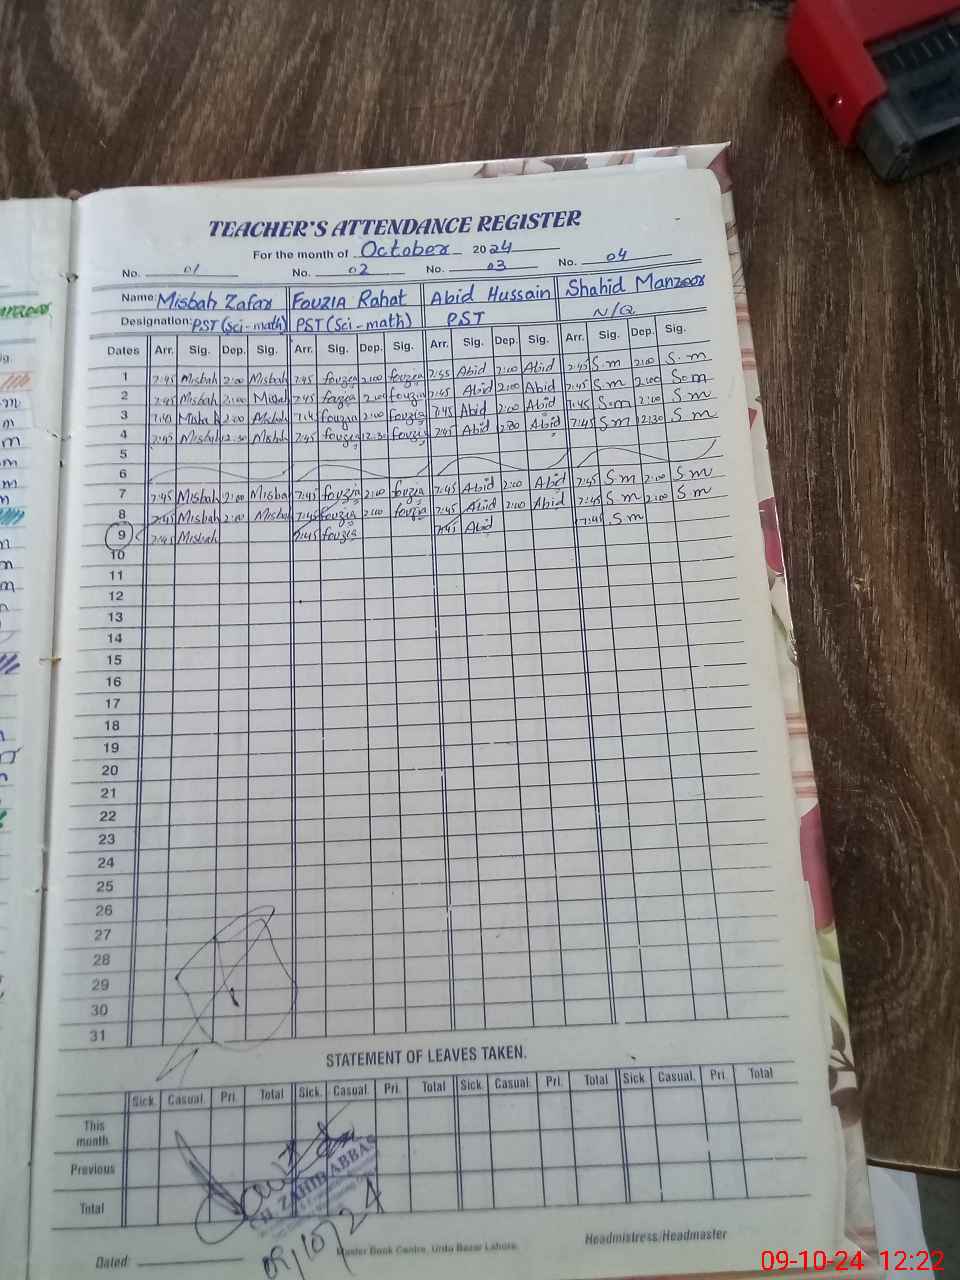 TEACHER'S ATTENDANCE REGISTER
For the month of October 2024
No. 01 No. 02 No. 03 No. 04
Name: Misbah Zafar Fouzia Rahat Abid Hussain Shahid Manzoor
Designation: PST (Sci-math) PST (Sci-math) PST N/Q
Dates Arr. Sig. Dep. Sig. Arr. Sig. Dep. Sig. Arr. Sig. Dep. Sig. Arr. Sig. Dep. Sig.
1 7:45 Misbah 2:00 Misbah 7:45 fouzia 2:00 fouzia 7:45 Abid 2:00 Abid 7:45 S.m 2:00 S.m
2 7:45 Misbah 2:00 Misbah 7:45 fouzia 2:00 fouzia 7:45 Abid 2:00 Abid 7:45 S.m 2:00 S.m
3 7:45 Misbah 2:00 Misbah 7:45 fouzia 2:00 fouzia 7:45 Abid 2:00 Abid 7:45 S.m 2:00 S.m
4 7:45 Misbah 12:30 Misbah 7:45 fouzia 12:30 fouzia 7:45 Abid Abid 7:45 S m 12:30 S m
5
6
7 7:45 Misbah 2:00 Misbah 7:45 fouzia 2:00 fouzia 7:45 Abid 2:00 Abid 7:45 S m 2:00 S m
8 7:45 Misbah 2:00 Misbah 7:45 fouzia 2:00 fouzia 7:45 Abid 2:00 Abid 7:45 S m 2:00 S m
9 7:45 Misbah 7:45 fouzia 7:45 Abid 7:45 S.m
10
11
12
13
14
15
16
17
18
19
20
21
22
23
24
25
26
27
28
29
30
31
STATEMENT OF LEAVES TAKEN.
Sick. Casual. Pri. Total Sick. Casual. Pri. Total Sick. Casual. Pri. Total Sick. Casual. Pri. Total
This month
Previous
Total
ZAHID ABBAS
09/10/24
Dated: Master Book Centre, Urdu Bazar Lahore. Headmistress/Headmaster
09-10-24 12:22